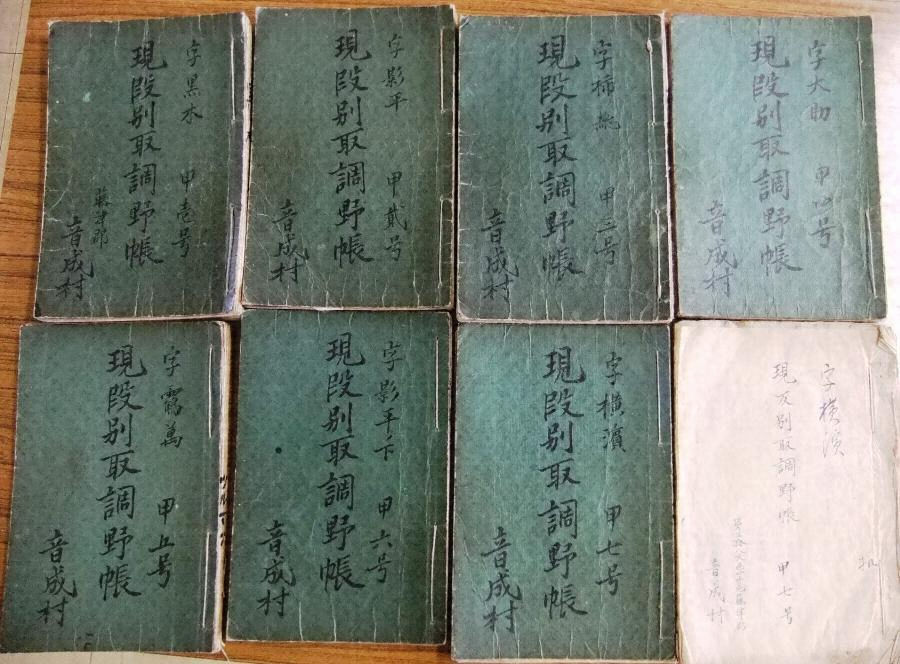 字黒木 甲壱号
現段別取調野帳
藤津郡
音成村
字影平 甲貳号
現段別取調野帳
音成村
甲三号
現段別取調野帳
音成村
字大助 甲四号
現段別取調野帳
音成村
甲五号
現段別取調野帳
音成村
字影平下 甲六号
現段別取調野帳
音成村
字横濱 甲七号
現段別取調野帳
音成村
字横濱
現反別取調野帳 甲七号
音成村